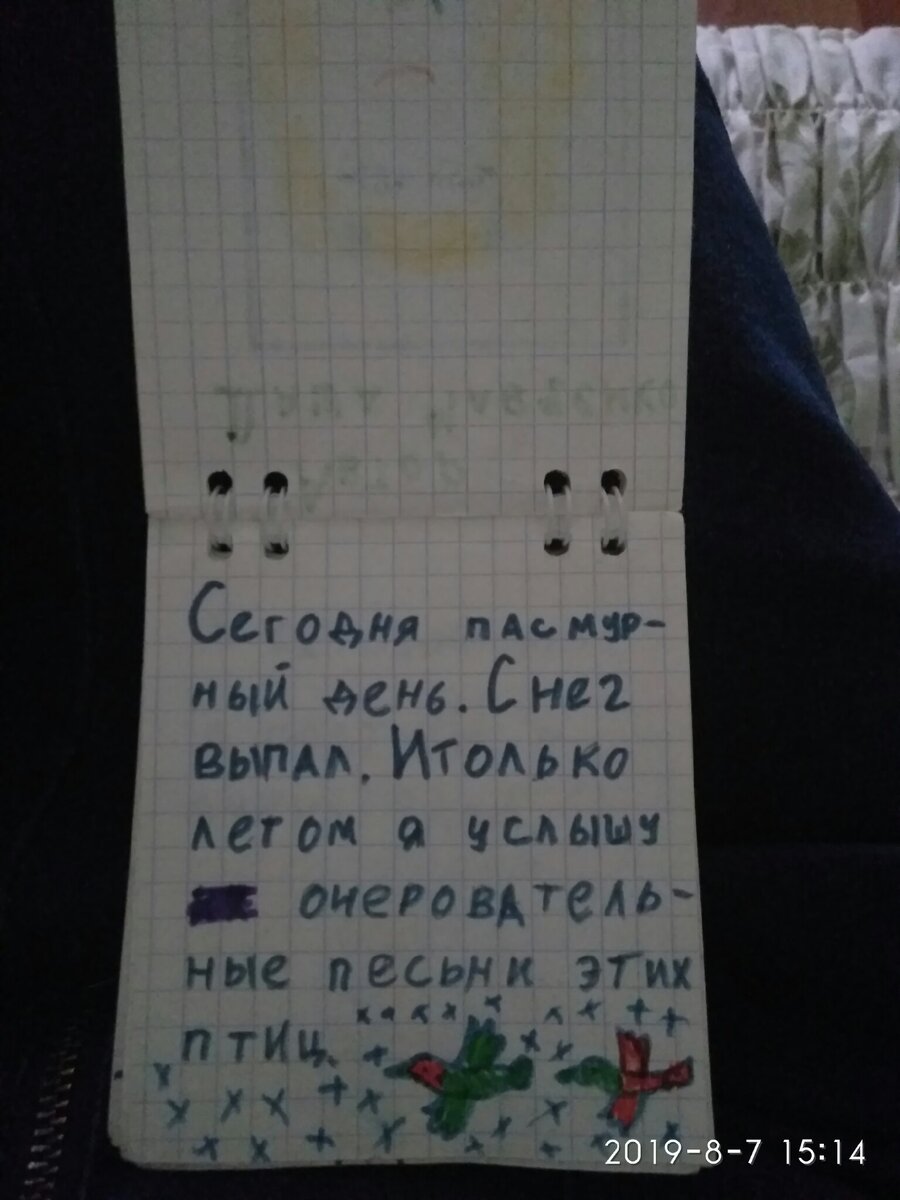 Сегодня пасмур-
ный день. Снег
выпал. Итолько
летом я услышу
очерователь-
ные песьни этих
птиц.
2019-8-7 15:14